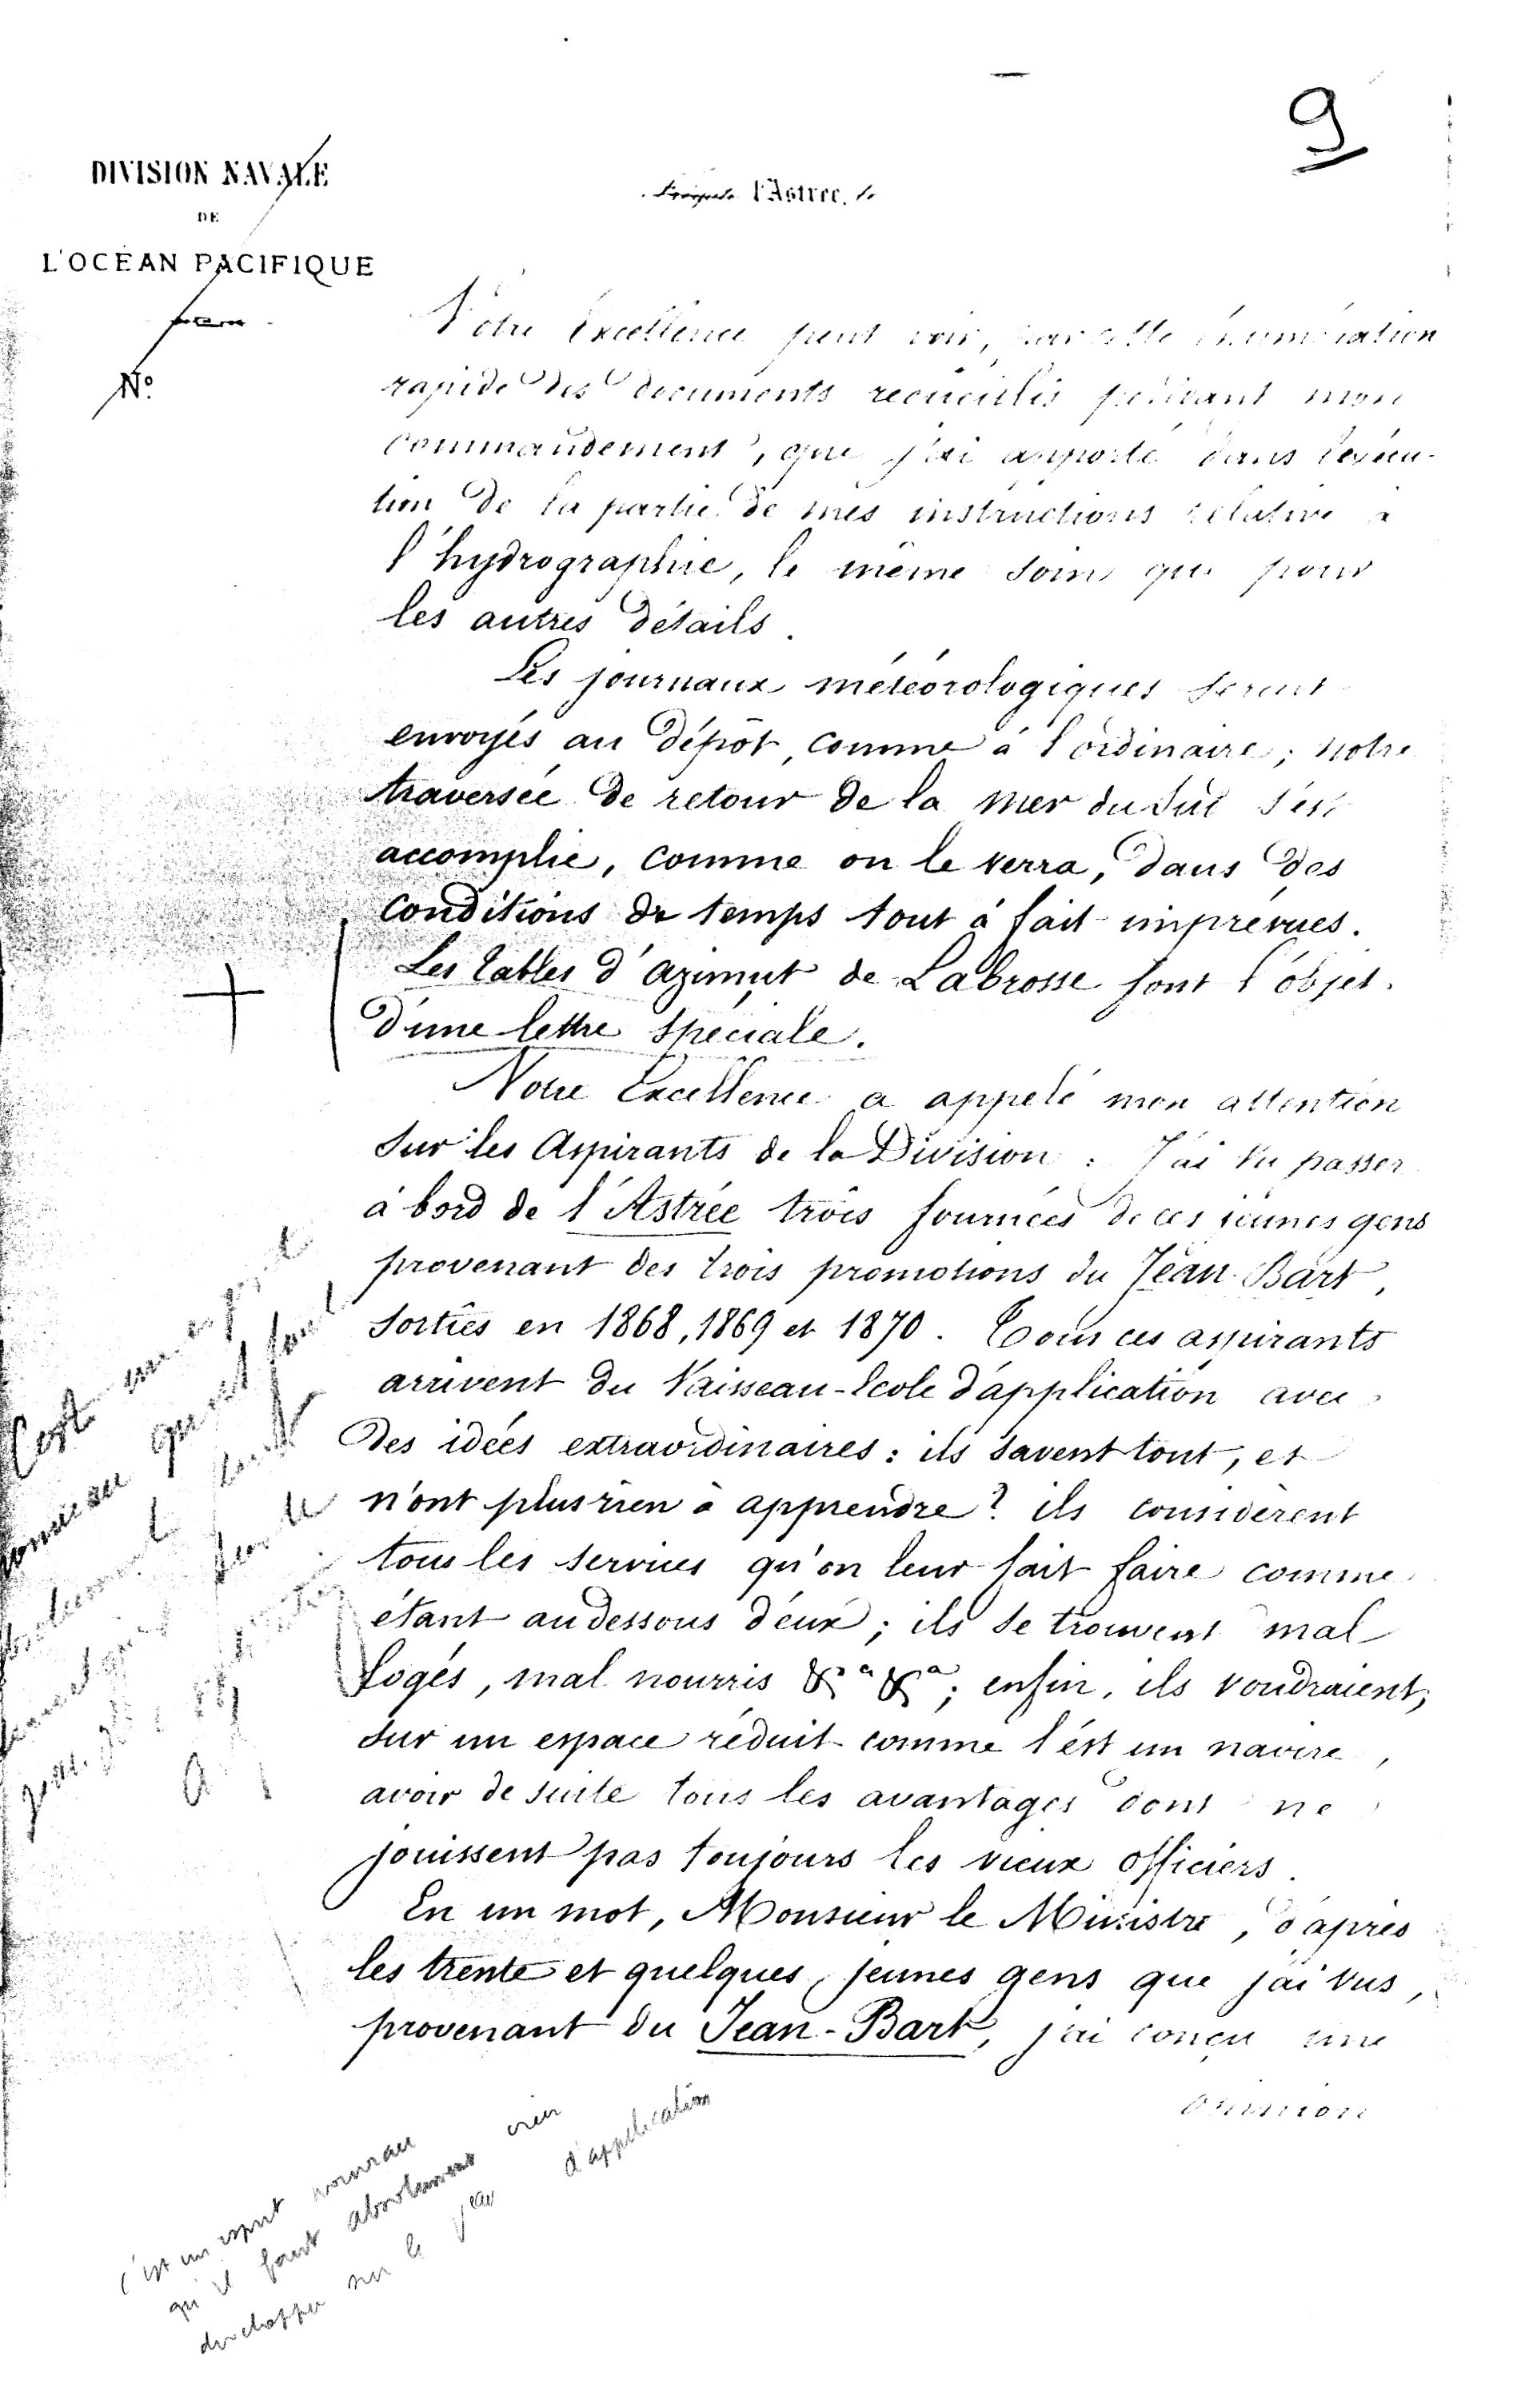 9
DIVISION NAVALE
DE
L'OCÉAN PACIFIQUE
N°
Frégate l'Astrée, le
Votre Excellence peut voir, par cette énumération
rapide des documents recueillis pendant mon
commandement, que j'ai apporté dans l'exécu-
tion de la partie de mes instructions relative à
l'hydrographie, le même soin que pour
les autres détails.
Les journaux météorologiques seront
envoyés au dépôt, comme à l'ordinaire; notre
traversée de retour de la mer du Sud s'est
accomplie, comme on le verra, dans des
conditions de temps tout à fait imprévues.
Les tables d'azimut de Labrosse font l'objet
d'une lettre spéciale.
Votre Excellence a appelé mon attention
sur les Aspirants de la Division : J'ai vu passer
à bord de l'Astrée trois fournées de ces jeunes gens
provenant des trois promotions du Jean Bart,
sorties en 1868, 1869 et 1870. Tous ces aspirants
arrivent du Vaisseau-école d'application avec
des idées extraordinaires : ils savent tout, et
n'ont plus rien à apprendre? ils considèrent
tous les services qu'on leur fait faire comme
étant au dessous d'eux; ils se trouvent mal
logés, mal nourris &a &a; enfin, ils voudraient,
sur un espace réduit comme l'est un navire,
avoir de suite tous les avantages dont ne
jouissent pas toujours les vieux officiers.
En un mot, Monsieur le Ministre, d'après
les trente et quelques jeunes gens que j'ai vus,
provenant du Jean-Bart, j'ai conçu une
opinion
C'est un esprit
nouveau qu'il faut
c'est un esprit nouveau
qu'il faut absolument
développer sur le d'application